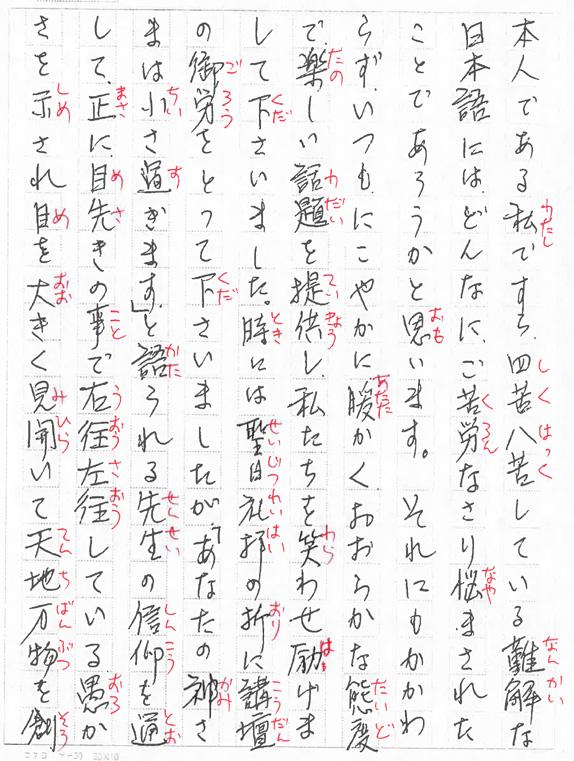 本人である私ですら、四苦八苦している難解な
日本語には、どんなに、ご苦労なさり悩まされた
ことであろうかと思います。それにもかかわ
らず、いつも、にこやかに暖かくおおらかな態度
で、楽しい話題を提供し、私たちを笑わせ励げま
して下さいました。時には聖日礼拝の折に講壇
の御労をとって下さいましたが、「あなたの神さ
まは小さ過ぎます」と語られる先生の信仰を通
して、正に目先きの事で右往左往している愚か
さを示され目を大きく見開いて天地万物を創